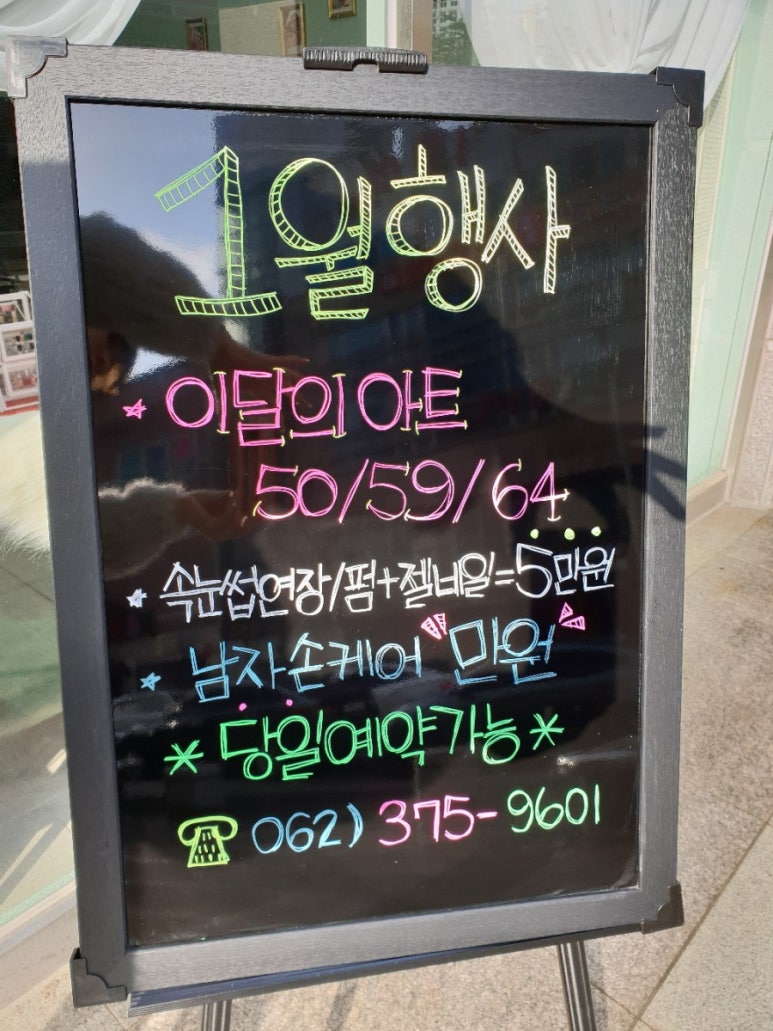 1월행사
이달의 아트
50/59/64
속눈썹연장/펌+젤네일=5만원
남자손케어 "만원"
* 당일예약가능 *
☎ 062) 375-9601